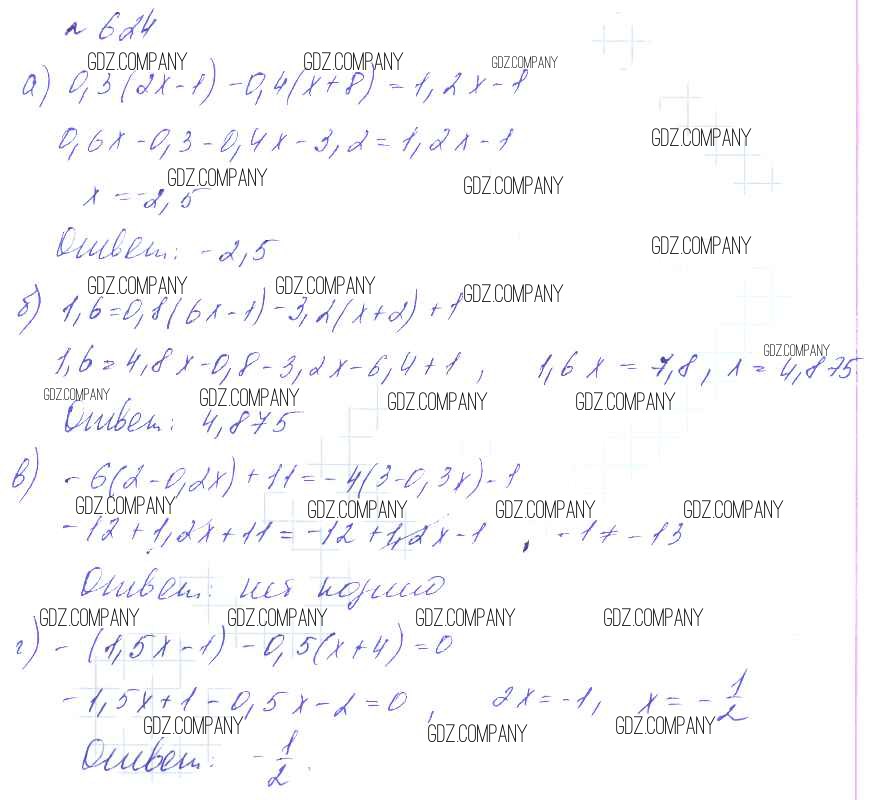 № 624
GDZ.COMPANY GDZ.COMPANY GDZ.COMPANY
а) 0,3(2x-1) -0,4(x+8) = 1,2x-1
0,6x-0,3-0,4x-3,2=1,2x-1 GDZ.COMPANY
GDZ.COMPANY GDZ.COMPANY
x = -2,5
Ответ: -2,5 GDZ.COMPANY
GDZ.COMPANY GDZ.COMPANY GDZ.COMPANY
б) 1,6=0,8(6x-1)-3,2(x+2)+1
GDZ.COMPANY
1,6=4,8x-0,8-3,2x-6,4+1, 1,6x = 7,8, x = 4,875
GDZ.COMPANY GDZ.COMPANY GDZ.COMPANY GDZ.COMPANY
Ответ: 4,875
в) -6(2-0,2x)+11=-4(3-0,3x)-1
GDZ.COMPANY GDZ.COMPANY GDZ.COMPANY GDZ.COMPANY
-12+1,2x+11=-12+1,2x-1, -1≠-13
Ответ: нет
GDZ.COMPANY GDZ.COMPANY GDZ.COMPANY GDZ.COMPANY
г) -(1,5x-1)-0,5(x+4)=0
-1,5x+1-0,5x-2=0, 2x=-1, x=-1/2
GDZ.COMPANY GDZ.COMPANY GDZ.COMPANY
Ответ: -1/2.